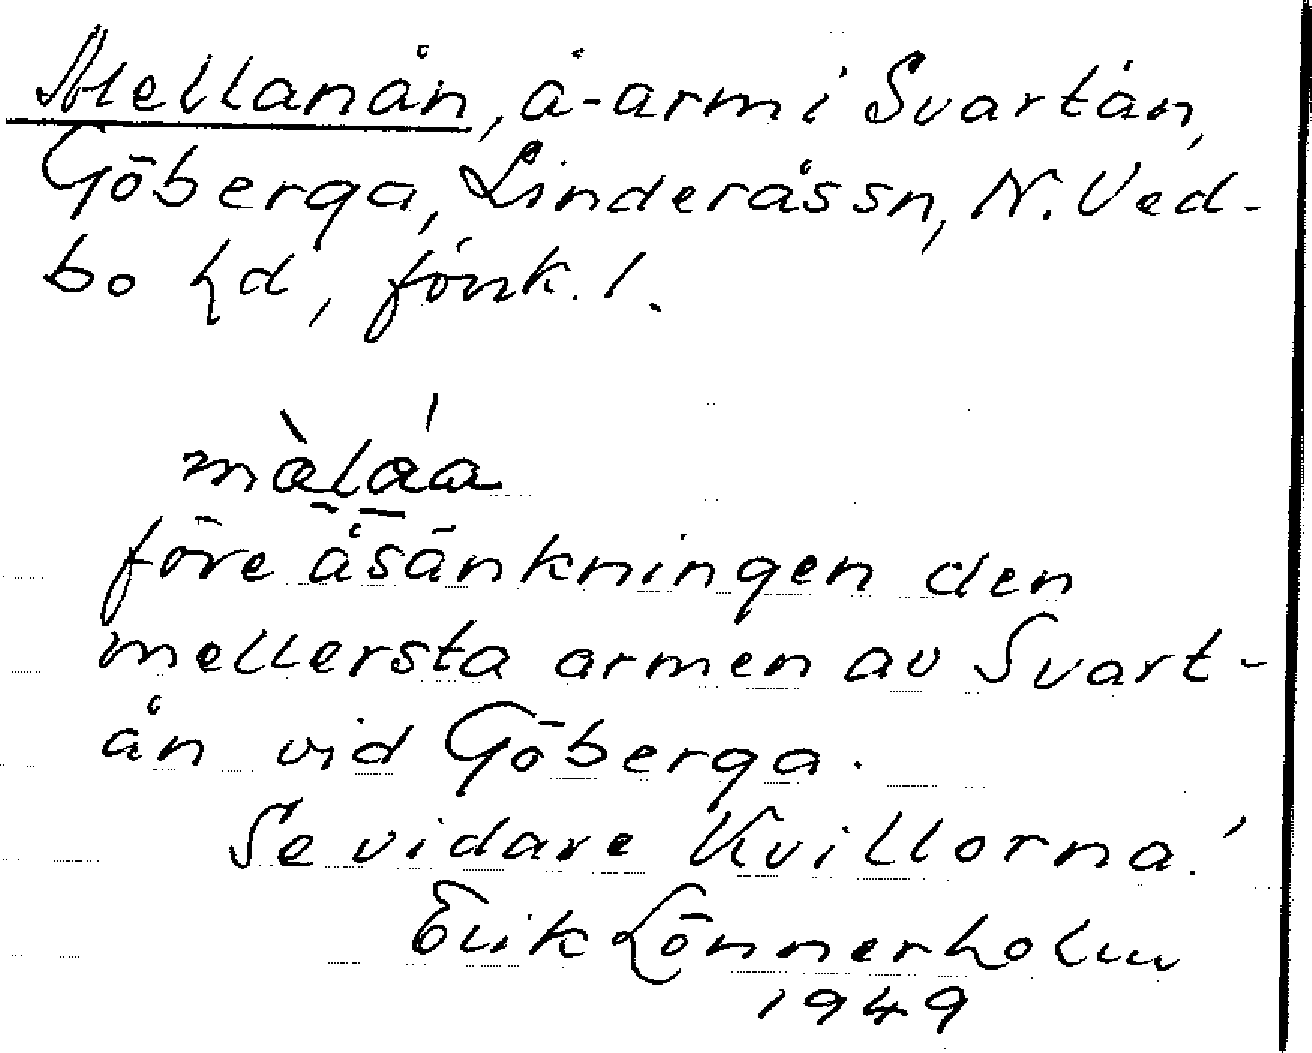 Mellanån, å-arm i Svartån,
Göberga, Linderås sn, N. Ved-
bo hd, Jönk. l.
före åsänkningen den
mellersta armen av Svart-
ån vid Göberga.
Se vidare Kvillorna!
Erik Lönnerholm
1949